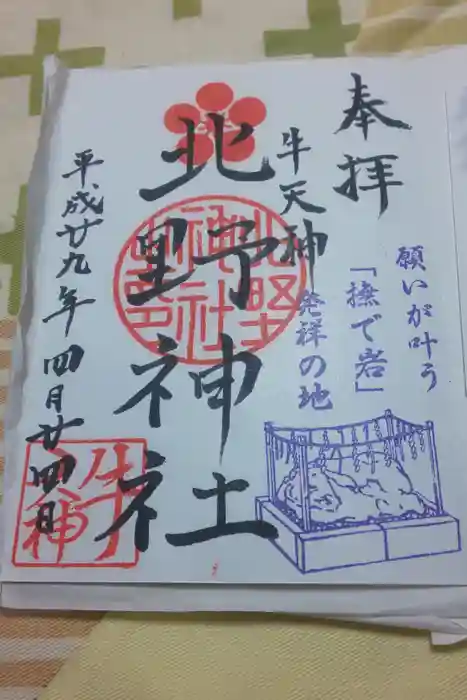 奉拝
願いが叶う
「撫で岩」
発祥の地
牛天神
北野神社
平成廿九年四月廿四日
北野神社
牛天神